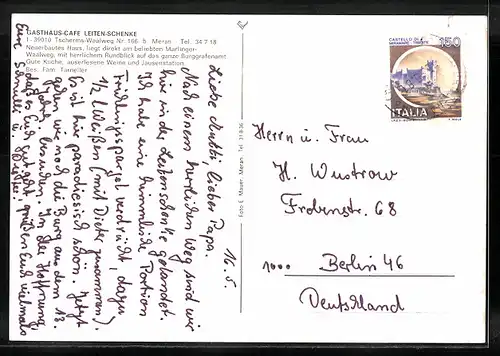 GASTHAUS-CAFE LEITEN-SCHENKE
I - 39010 Tscherms-Waalweg Nr. 166 b Meran - Tel. 34 7 18
Neuerbautes Haus, liegt direkt am beliebten Marlinger-
Waalweg, mit herrlichem Rundblick auf das ganze Burggrafenamt
Gute Küche, auserlesene Weine und Jausenstation.
Bes. Fam.
16. 5.
Liebe Mutti, lieber Papa.
Nach einem herrlichen Weg sind wir
hier in der Leitenschenke gelandet.
Ich habe eine himmlische Portion
Frühlingsspargel verdrückt, dazu
1/2 Weißen (mit Dieter zusammen).
Es ist hier paradiesisch schön. Jetzt
gehen wir noch die Burg aus dem 13.
Jahrh. besuchen. In der Hoffnung
daß es Euch gut geht, grüßen Euch vielmals
Eure u. Dieter
CASTELLO DI
150
ITALIA
Herrn u. Frau
H. Wustrow
Frobenstr. 68
1000 Berlin 46
Deutschland